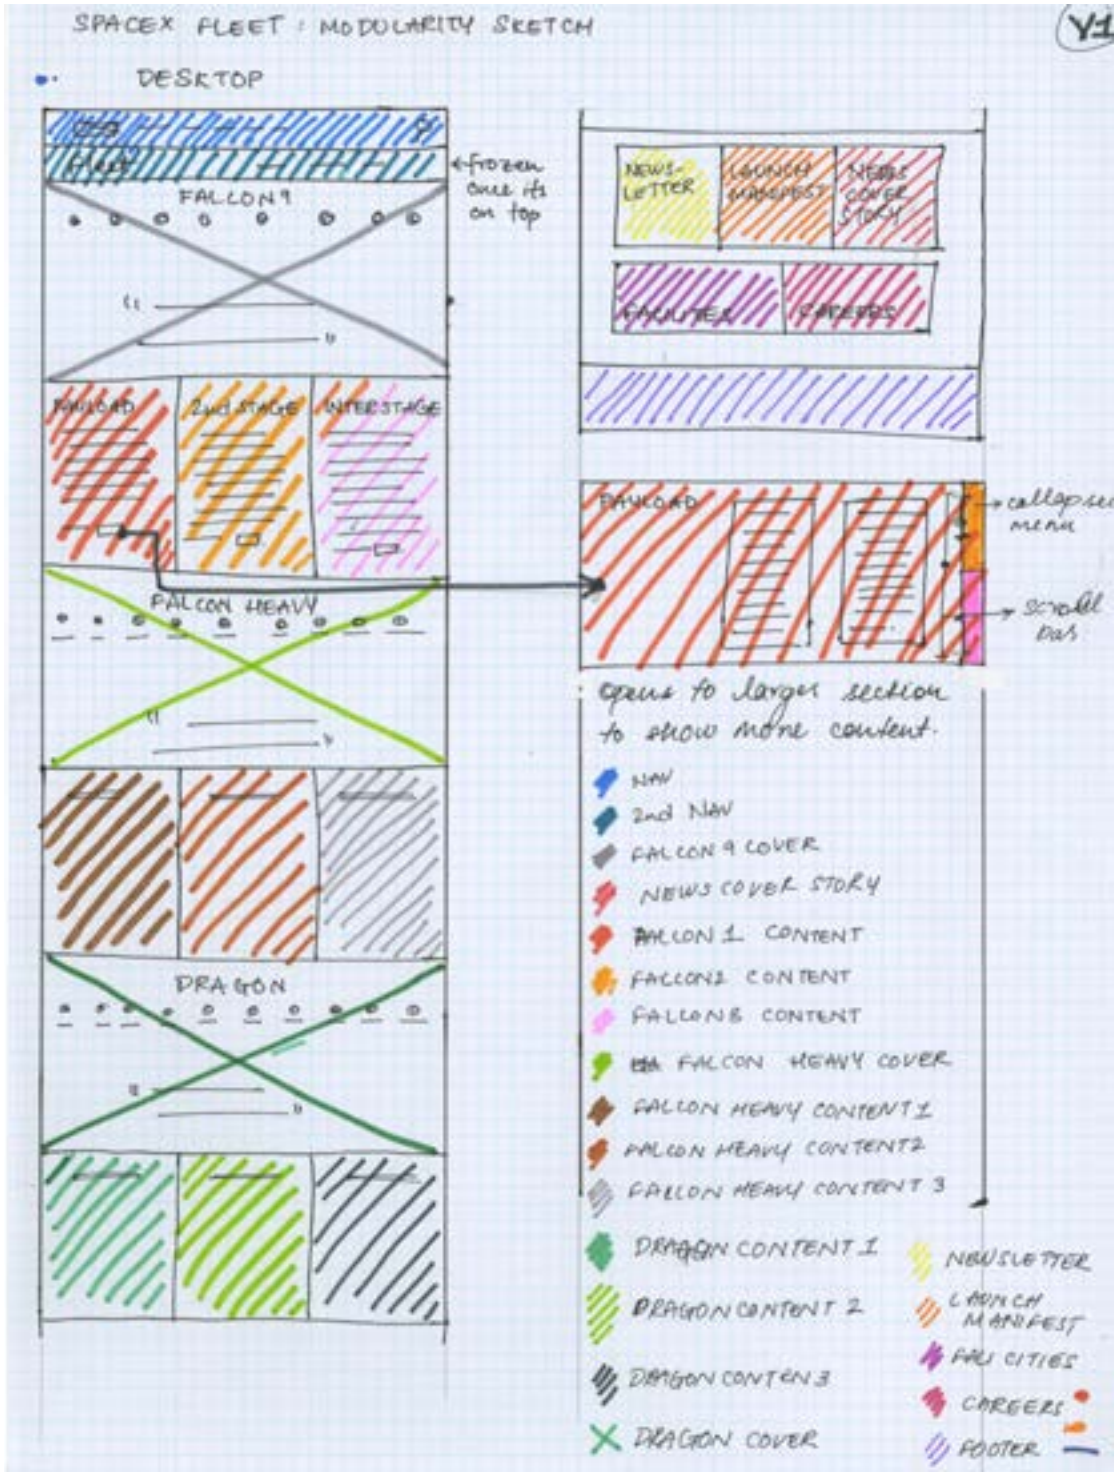 SPACEX FLEET : MODULARITY SKETCH
V1
DESKTOP
Fleet
← frozen
once its
on top
FALCON 9
PAYLOAD
2nd STAGE
INTERSTAGE
FALCON HEAVY
DRAGON
NEWS-
LETTER
LAUNCH
MANIFEST
NEWS
COVER
STORY
FACILITES
CAREERS
PAYLOAD
menu
scroll
bar
opens to larger section
to show more content.
NAV
2nd NAV
FALCON 9 COVER
NEWS COVER STORY
FALCON 1 CONTENT
FALCON2 CONTENT
FALCON3 CONTENT
FALCON HEAVY COVER
FALCON HEAVY CONTENT 1
FALCON HEAVY CONTENT2
FALCON HEAVY CONTENT 3
DRAGON CONTENT 1
DRAGON CONTENT 2
DRAGON CONTEN 3
DRAGON COVER
NEWSLETTER
LAUNCH
MANIFEST
FALICITIES
CAREERS
FOOTER